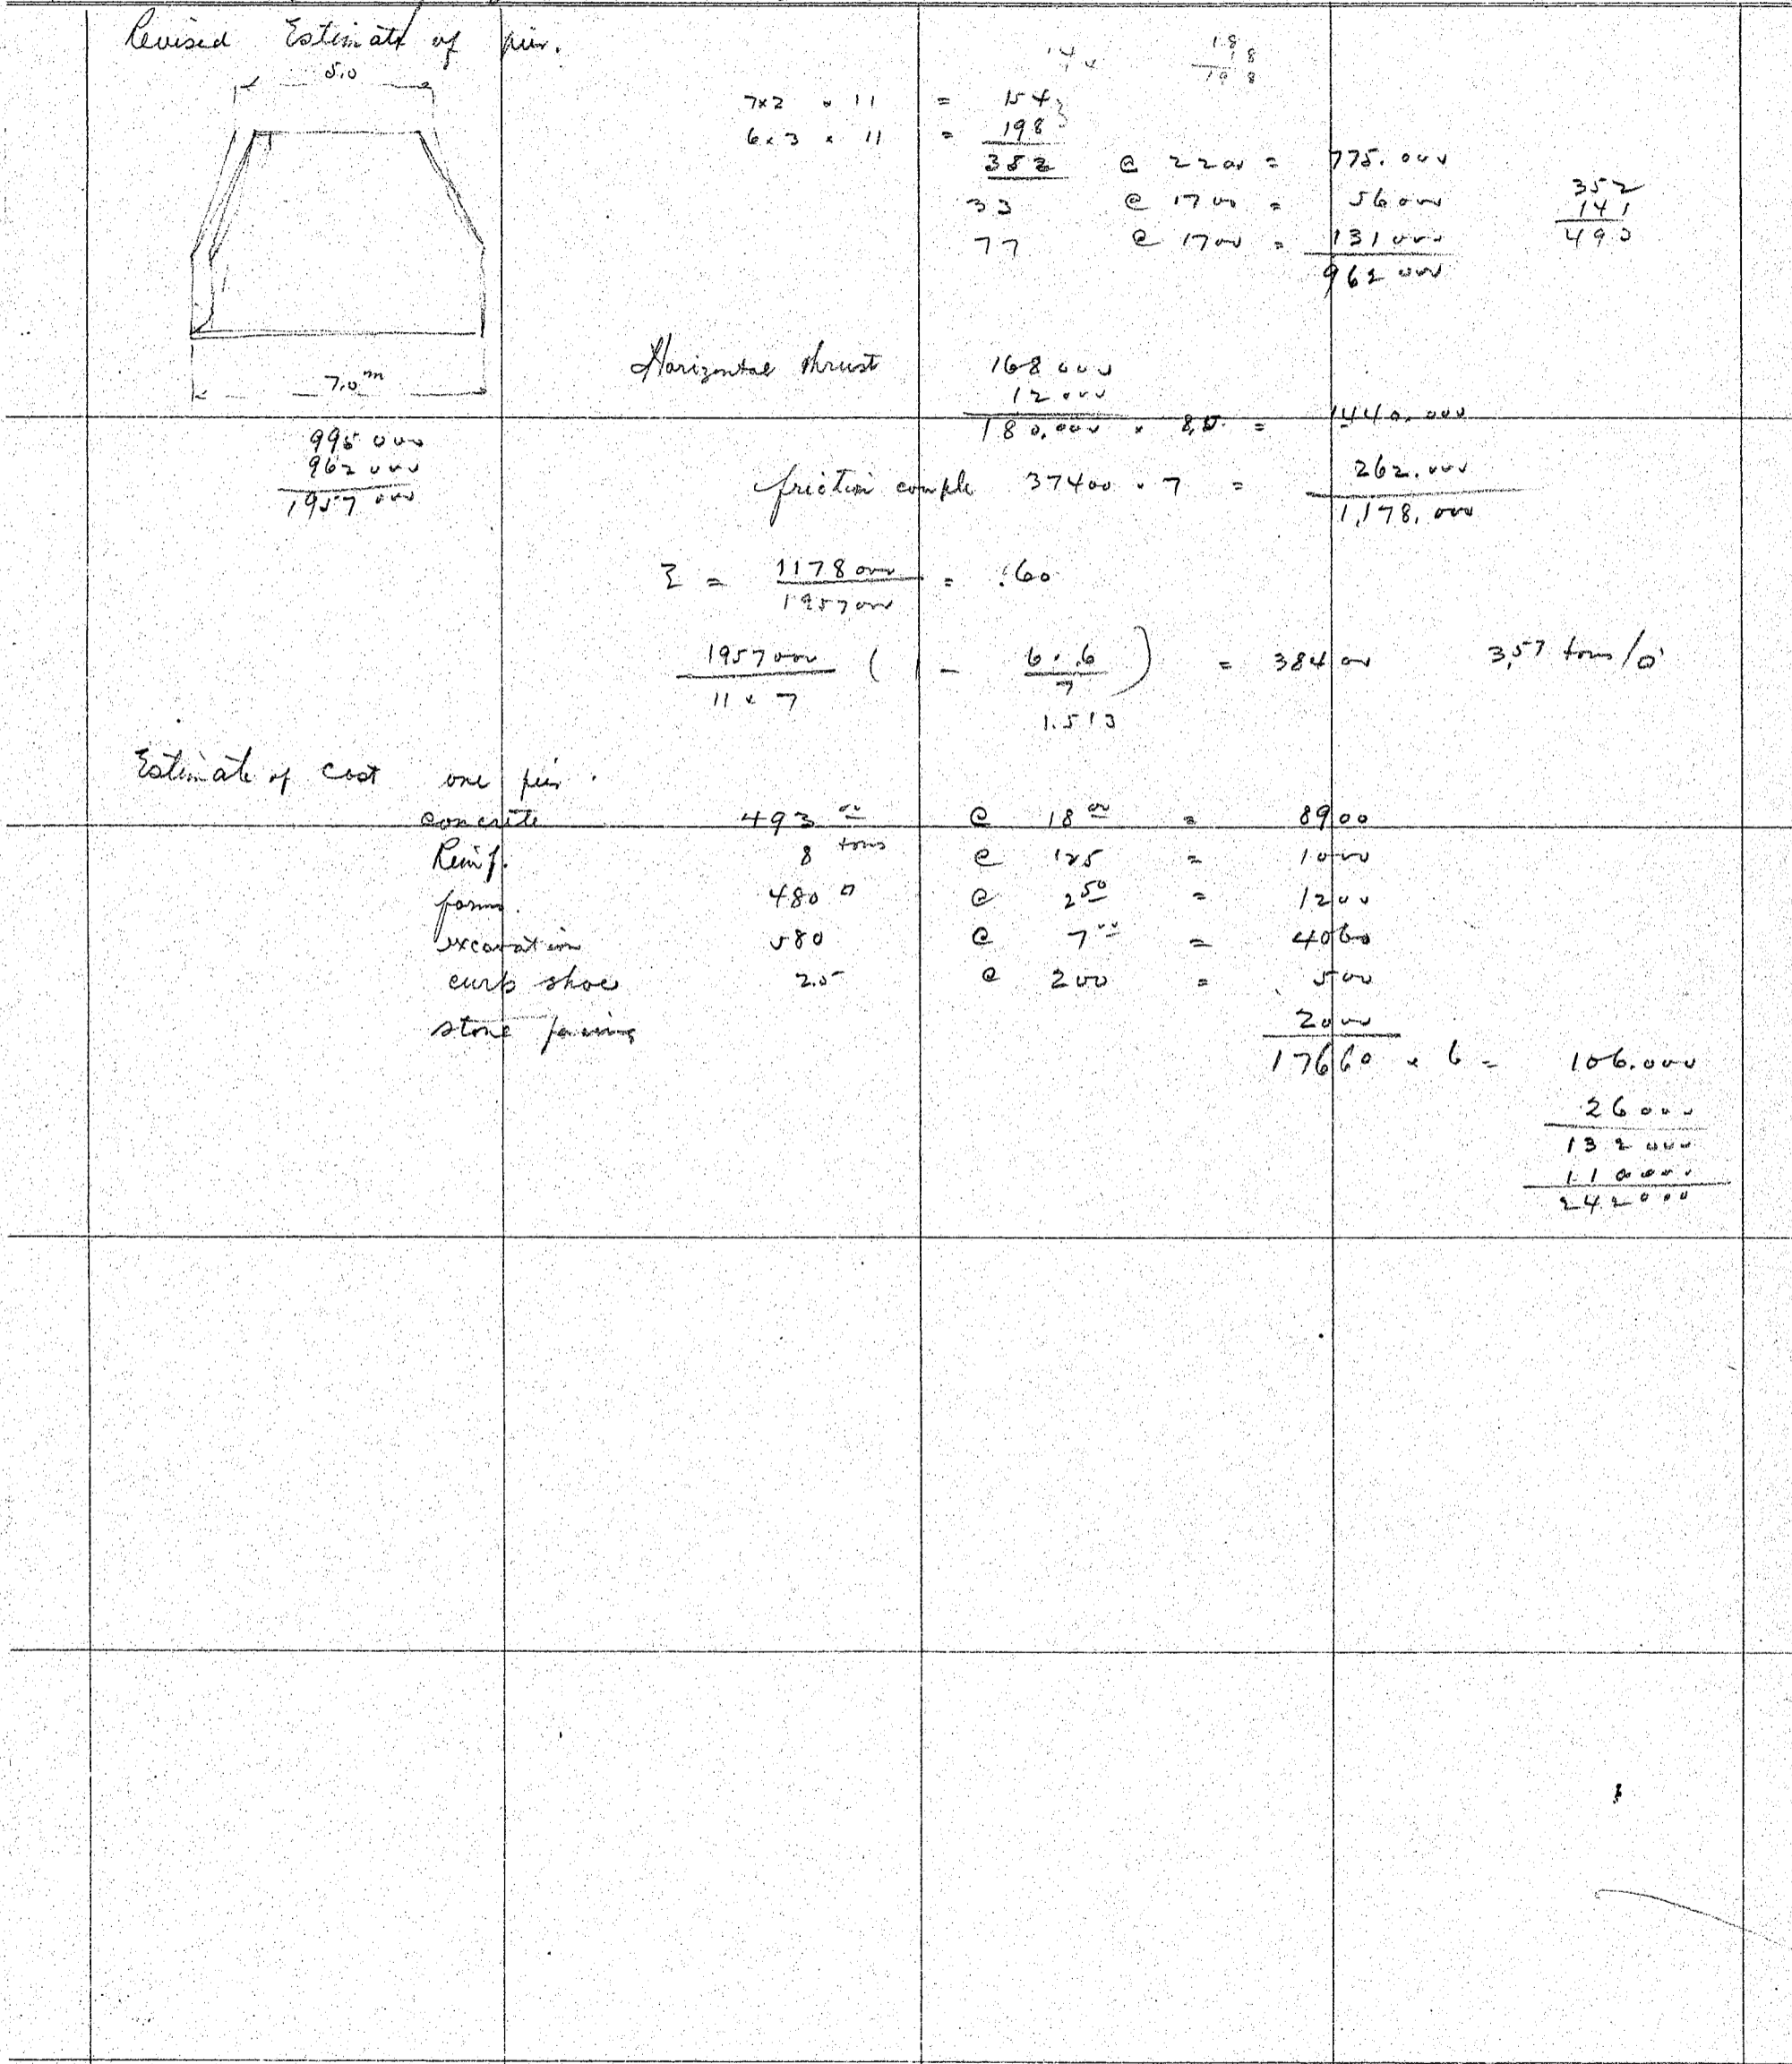 Revised Estimate of pier.
5.0
18
18
198
7x2 x 11 = 154
6x3 x 11 = 198
352 @ 2200 = 775.000
33 @ 1700 = 56000
77 @ 1700 = 131000
962 000
352
141
493
7.0 m
Horizontal thrust 168 000
12 000
180,000 x 8.0 = 1440.000
995 000
962 000
1957 000
friction couple 37400 x 7 = 262.000
1,178,000
Σ = 1178000 / 1957000 = .60
1957000 / 11 x 7 ( 1 - 6 x .6 / 7 ) = 38400 3.57 tons/□'
1.513
Estimate of cost one pier.
concrete 493 00 @ 18 00 = 8900
Reinf. 8 tons @ 125 = 1000
forms. 480 □ @ 2 50 = 1200
excavation 580 @ 7 00 = 4060
curb shoe 2.5 @ 200 = 500
stone facing 2000
17660 x 6 = 106.000
26000
132 000
110000
242000